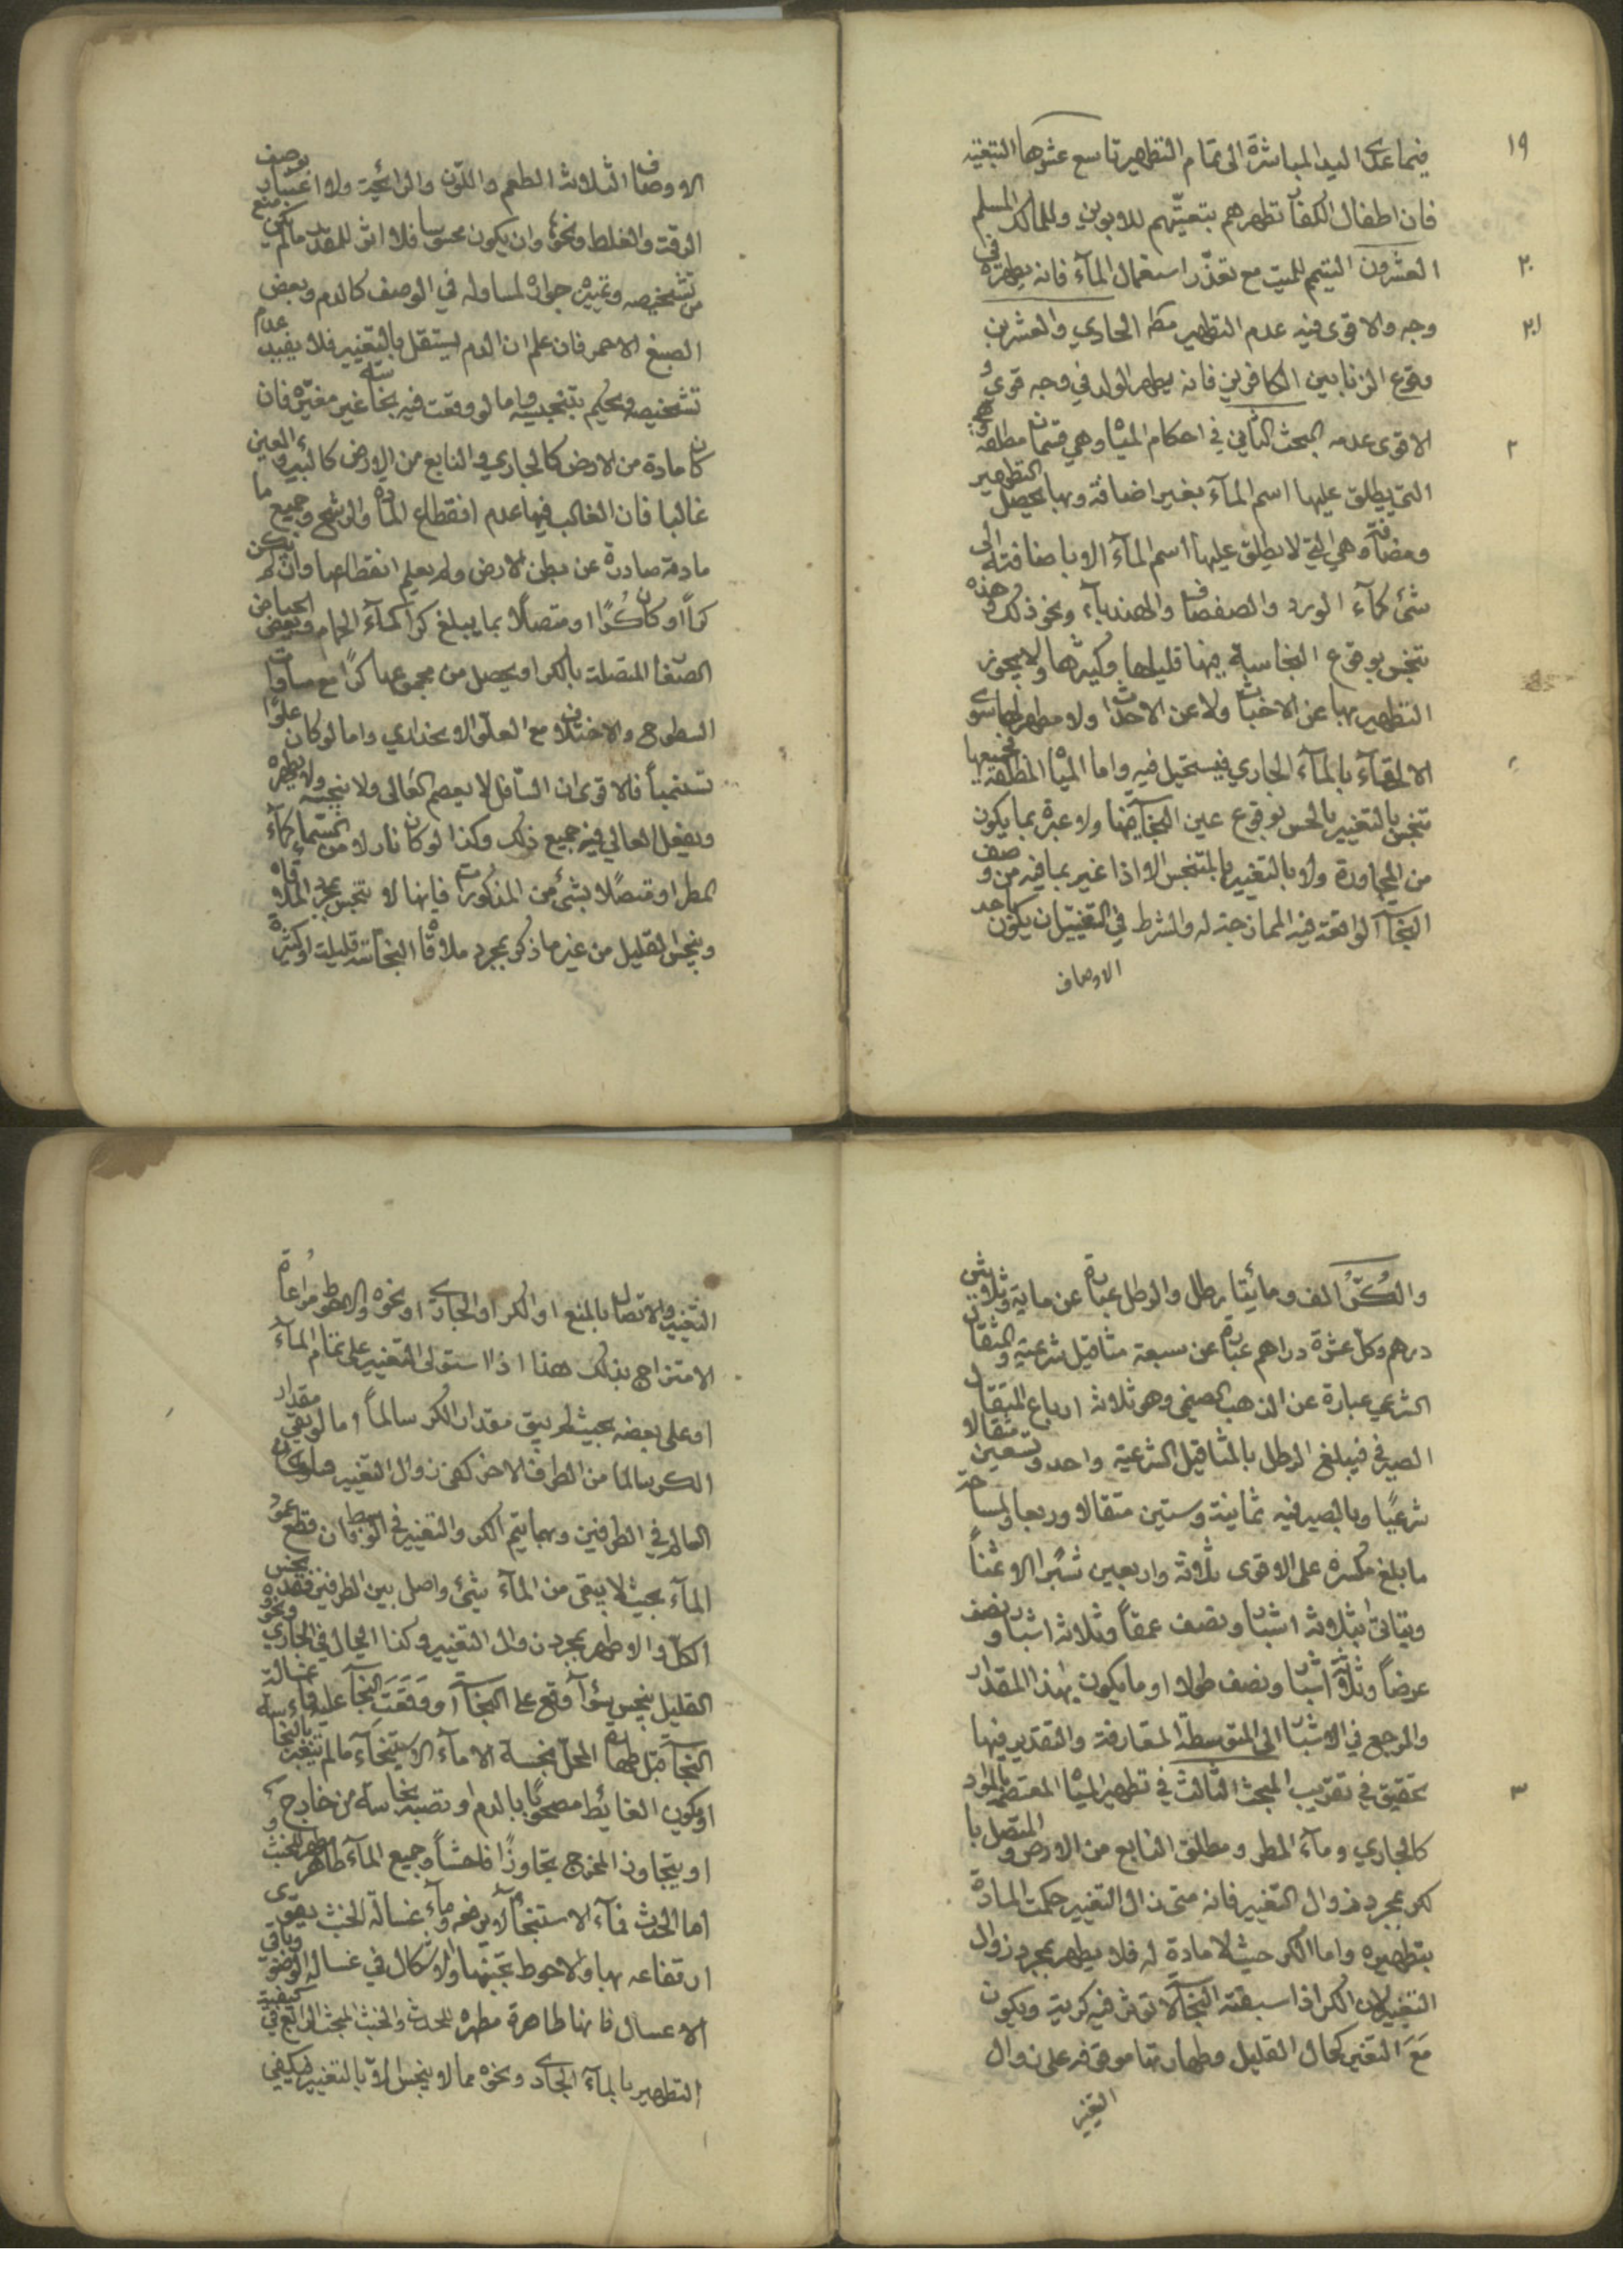 ١٩
فيما عدى اليد المباشرة الى تمام التطهير تاسع عشرها التبعية
فان اطفال الكفار تطهرهم بتبعيتهم للابوين وللمالك المسلم
٢٠
العشرون التيمم للميت مع تعذر استعمال المآء فانه يطهره في
٢١
وجه والاقوى فيه عدم التطهير مط الحادي والعشرين
وقوع الزنا بين الكافرين فانه يطهر الولد في وجه قوي و
٢
الاقوى عدمه البحث الثاني في احكام المياه وهي قسمان مطلقة
التي يطلق عليها اسم المآء بغير اضافة وبها يحصل التطهير
ومضافة وهي التي لا يطلق عليها اسم المآء الا باضافته الى
شئ كمآء الورد والصفصاف والهندبآء ونحو ذلك وهذه
تنجس بوقوع النجاسة فيها قليلها وكثيرها ولا يجوز
التطهير بها عن الاخباث ولا عن الاحداث ولا مطهر لها سوى
الالقآء بالمآء الجاري فيستحيل فيه واما المياه المطلقة فجميعها
تنجس بالتغيير بالحس بوقوع عين النجاسة فيها ولا عبرة بما يكون
من المجاورة ولا بالتغيير بالمتنجس الا اذا غير بما فيه من وصف
النجاسة الواقعة فيه الممازجة له والشرط في التغيير ان يكون باحد
الاوصاف
الاوصاف الثلاثة الطعم واللون والرائحة ولا اعتبار بوصف
الرقة والغلظ ونحوها وان يكون محسوسا فلا اثر للمقدر ما لم يكن منع
من تشخيصه وتمييزه جواره لمساو له في الوصف كالدم وبعض
الصبغ الاحمر فان علم ان الدم يستقل بالتغيير فلا يفيد عدم
تشخيصه ويحكم بتنجيسه واما لو وقعت فيه نجاسة غير مغيرة فان
كان مادة من الارض كالجاري والنابع من الارض كالبئر والعين
غالبا فان الغالب فيها عدم انقطاع المادة والرشح وجميع ما
مادته صادرة عن بطن الارض ولم يعلم انقطاعها وان لم يكن
كرا او كان كرًا او متصلًا بما يبلغ كرا كمآء الحمام وبعض الحياض
الصغار المتصلة بالكر او يحصل من مجموعها كرًا مع مساوات
السطوح والاختلاف مع العلو الانحداري واما لو كان علوا
تسنميا فالاقوى ان السافل لا يعصم العالى ولا ينجسه ولا يطهره
ويفعل العالي فيه جميع ذلك وكذا لو كان نازلا من السماء كمآء
المطر او متصلا بشئ من المذكورات فانها لا تنجس بمجرد الملاقاه
وينجس القليل من غير ما ذكر بمجرد ملاقاة النجاسة قليلة او كثيرة
والكُرّ الف ومائيتا رطل والرطل عبارة عن ماية وثلاثين
درهم وكل عشرة دراهم عبارة عن سبعة مثاقيل شرعية والمثقال
الشرعي عبارة عن الذهب الصنمي وهو ثلاثة ارباع المثقال
الصيرفي فيبلغ الرطل بالمثاقيل الشرعية واحد وتسعين مثقالا
شرعيًا وبالصيرفيه ثمانية وستين مثقالا وربعا والمساحة
ما بلغ مكسره على الاقوى ثلاثة واربعين شبرًا الا ثمنًا
ويتاتى بثلاثة اشبار ونصف عمقًا وثلاثة اشبار ونصف
عرضًا وثلاثة اشبار ونصف طولا او ما يكون بهذا المقدار
والمرجع في الاشبار الى المتوسطة المتعارفة والتقدير فيها
٣
تحقيق في تقريب المبحث الثالث في تطهير المياه المعتصم بالمواد
كالجاري ومآء المطر ومطلق النابع من الارض والمتصل با
لكر بمجرد زوال التغيير فانه متى زال التغيير حكمت المادة
بتطهيره واما الكر حيث لا مادة له فلا يطهر بمجرد زوال
التغيير لان الكر اذا سبقته النجاسة لا تؤثر فيه كريته ويكون
مَعَ التغير كحال القليل وطهارتها موقوفه على زوال
التغير
التغيير والاتصال بالمنبع او الكر او الجاري او نحوه والاحوط مراعاة
الامتزاج بذلك هذا اذا استولى التغيير على تمام المآء
او على بعضه بحيث لم يبق مقدار الكر سالمًا اما لو بقي مقدار
الكر سالما من الطرف الاخر كفى زوال التغيير ولو كان
السالم في الطرفين وبهما يتم الكر والتغيير في الوسط فان قطع عمود
المآء بحيث لا يبقى من المآء شئ واصل بين الطرفين فقد نجس
الكل والا وطهر بمجرد زوال التغيير وكذا الحال في الجاري ونحوه
القليل ينجس سوآء وقع على النجاسة او وَقَعَت النجاسة عليه وماء غسالة
النجاسة قبل طهارة المحل نجسة الا مآء الاستنجآء ما لم يتغير بالنجاسة
او يكون الغائط مصحوبًا بالدم او تصبه نجاسة من خارج
او يتجاوز المخرج تجاوزًا فاحشًا وجميع المآء طاهر مطهر للخبث و
اما الحدث فمآء الاستنجآء لا يرفعه ومآء غسالة الخبث يقوى
ارتفاعه بها والاحوط تجنبها ولا اشكال في غسالة الوضوء وباقي
الاغسال فانها طاهرة مطهره للحدث والخبث المبحث الرابع في كيفية
التطهير بالمآء الجاري ونحوه مما لا ينجس الا بالتغيير فيكفي